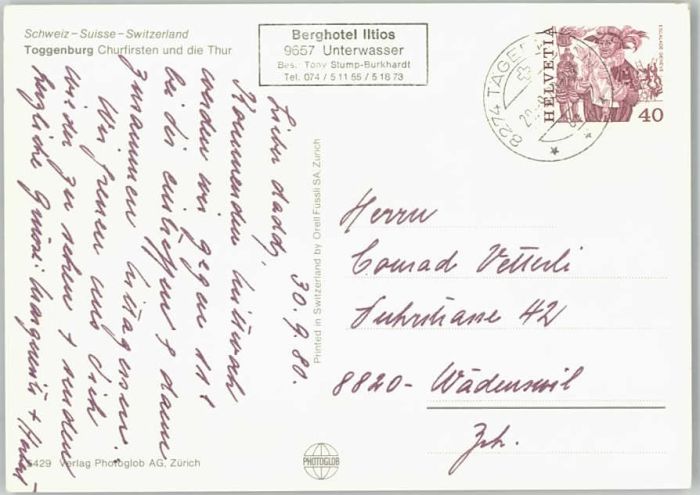 Schweiz – Suisse – Switzerland
Toggenburg Churfirsten und die Thur
Berghotel Iltios
9657 Unterwasser
Bes. Tony Stump-Burkhardt
Tel. 074 / 5 11 65 / 5 16 73
HELVETIA
ESCALADE GENÈVE
40
8274 TÄGER
30.9.80.
Lieber Daddy,
Kommenden Mittwoch
werden wir gegen 11 h
bei dir eintreffen & dann
zusammen Mittagessen.
Wir freuen uns dich
wieder zu sehen & senden
herzliche Grüsse: Margewrite + 
Printed in Switzerland by Orell Füssli SA, Zürich
Herrn
Conrad Vetterli
Fuhrstrasse 42
8820 - Wädenswil
Zch.
5429 Verlag Photoglob AG, Zürich
PHOTOGLOB